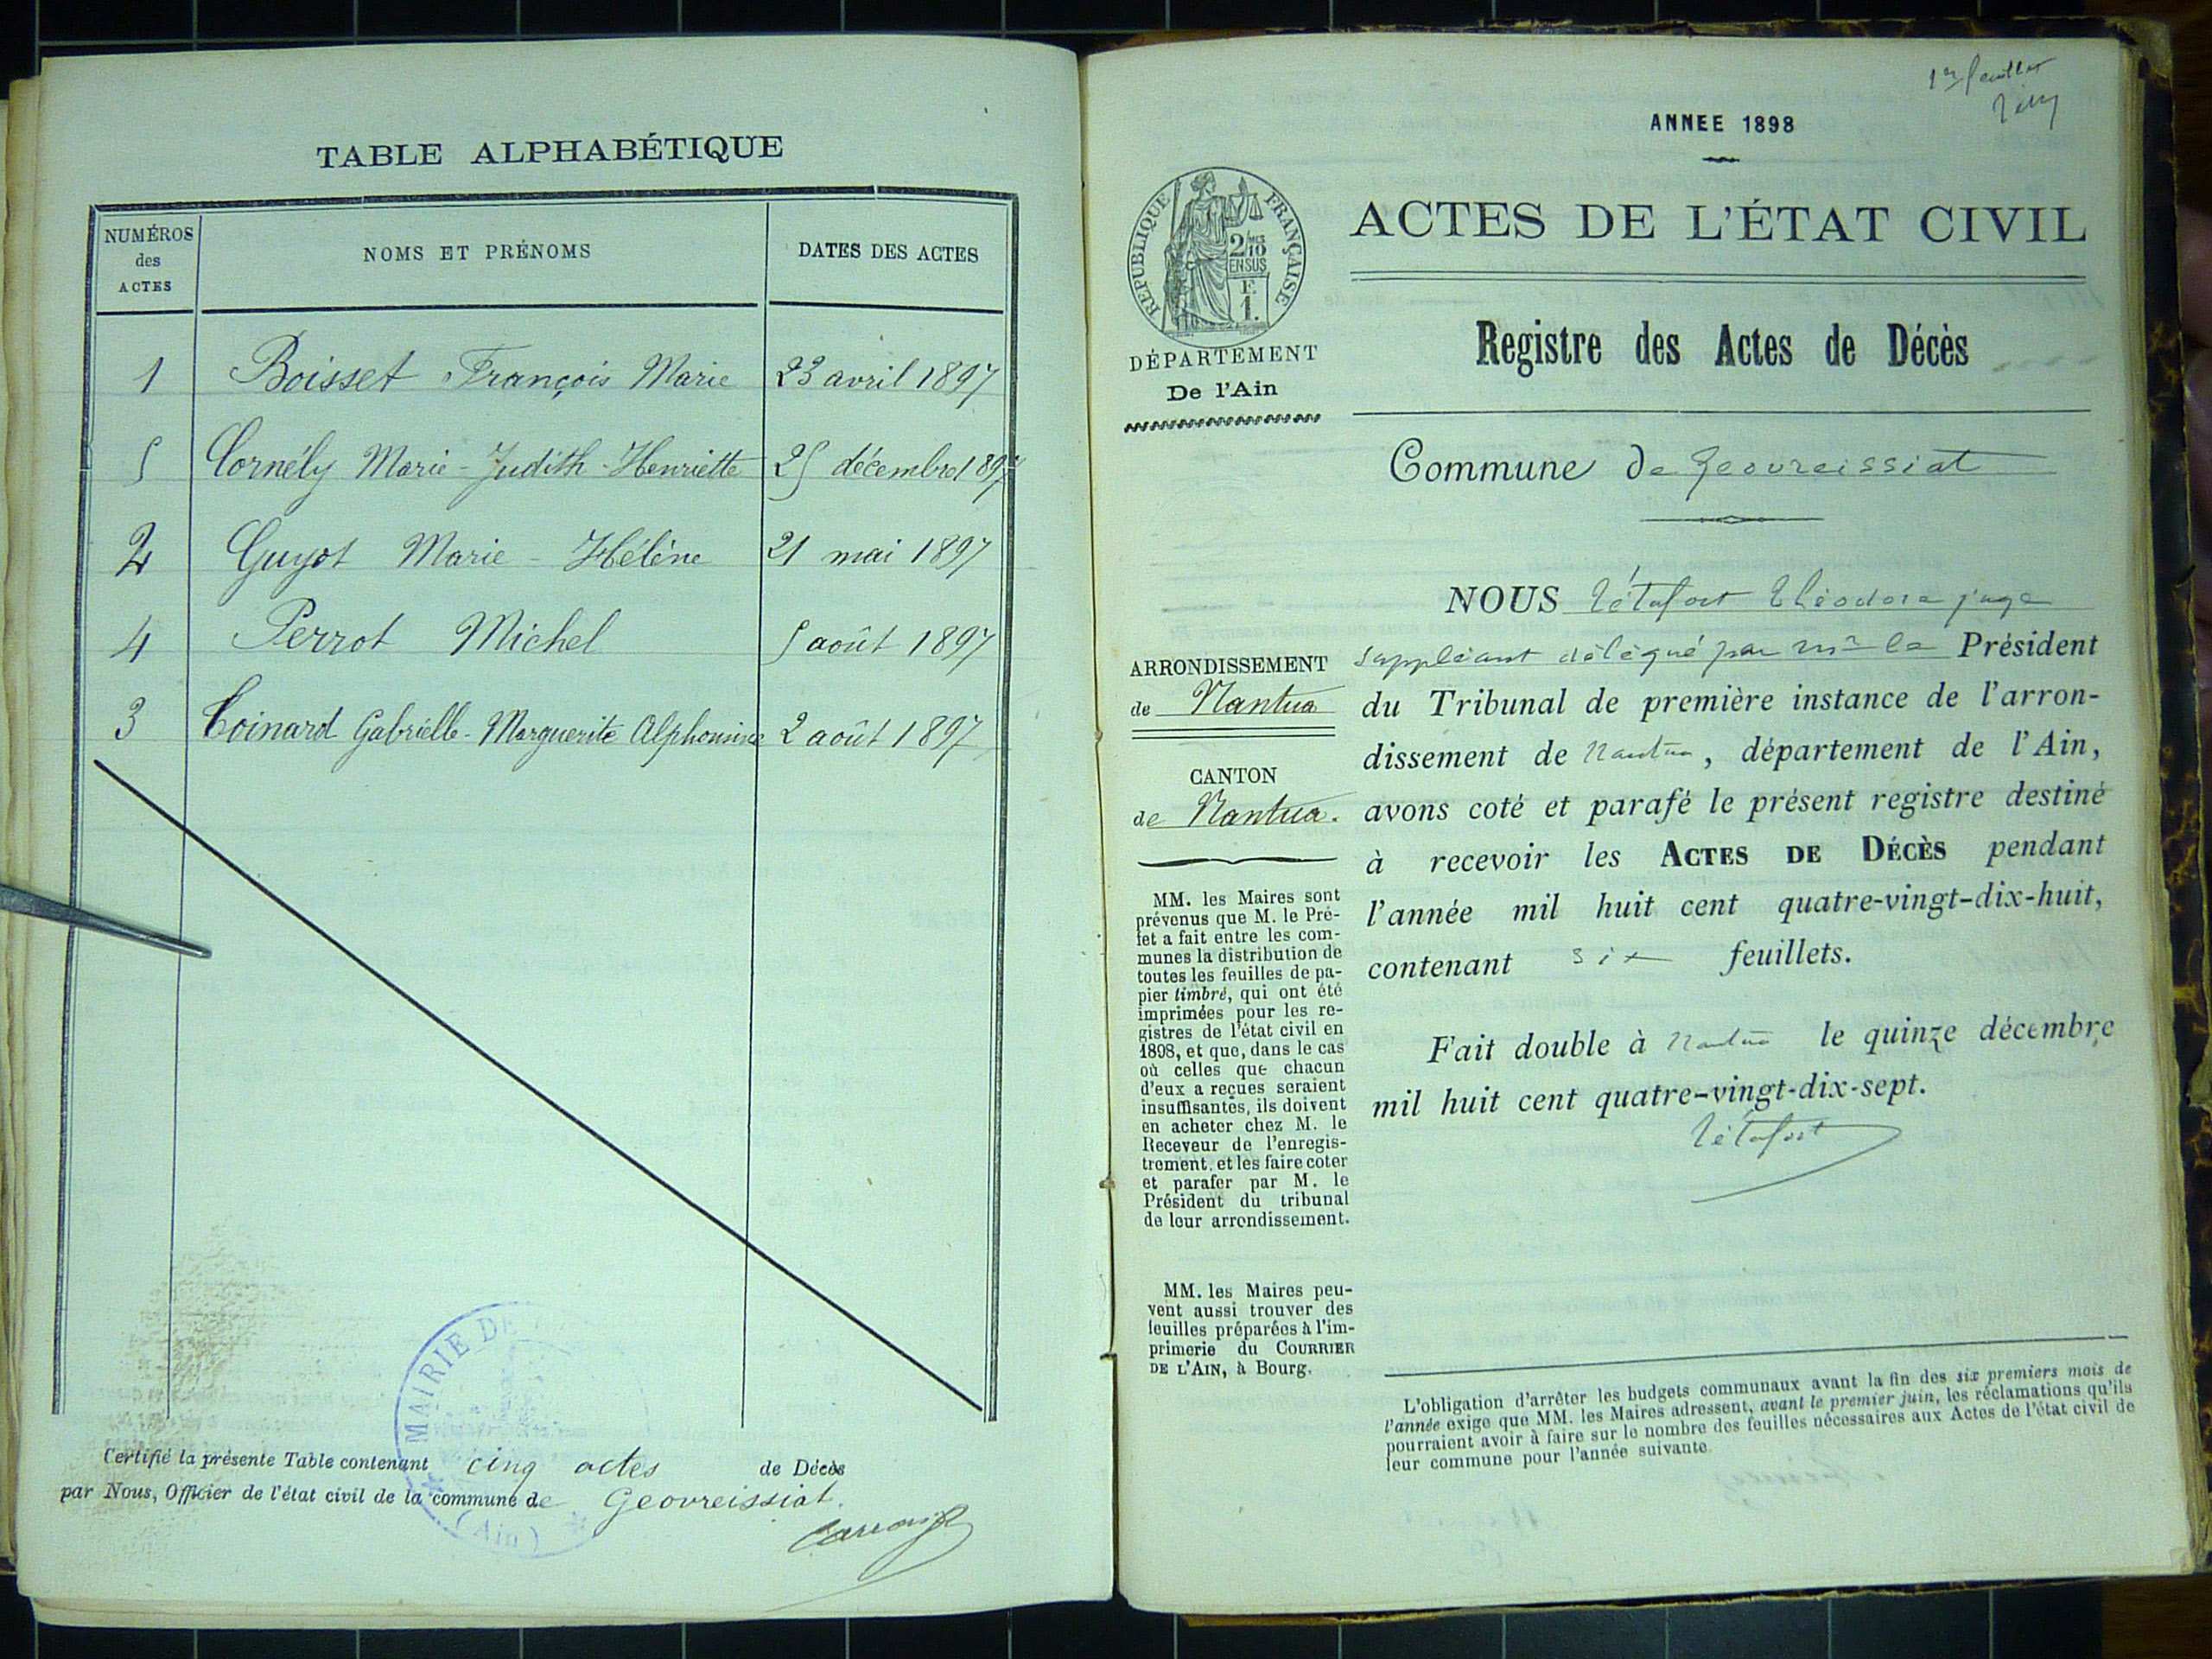 TABLE ALPHABÉTIQUE
NUMÉROS des ACTES
NOMS ET PRÉNOMS
DATES DES ACTES
1 Boisset François Marie 23 avril 1897
5 Cornély Marie-Judith-Henriette 25 décembre 1897
2 Guyot Marie-Hélène 21 mai 1897
4 Perrot Michel 5 août 1897
3 Coinard Gabrielle-Marguerite Alphonsine 2 août 1897
Certifié la présente Table contenant cinq actes de Décès
par Nous, Officier de l'état civil de la commune de Geovreissiat.
MAIRIE DE
(Ain)
1er feuillet
ANNEE 1898
REPUBLIQUE FRANÇAISE
2/10 EN SUS
F. 1.
DÉPARTEMENT
De l'Ain
ACTES DE L'ÉTAT CIVIL
Registre des Actes de Décès
Commune de Geovreissiat
ARRONDISSEMENT
de Nantua
CANTON
de Nantua.
MM. les Maires sont
prévenus que M. le Pré-
fet a fait entre les com-
munes la distribution de
toutes les feuilles de pa-
pier timbré, qui ont été
imprimées pour les re-
gistres de l'état civil en
1898, et que, dans le cas
où celles que chacun
d'eux a reçues seraient
insuffisantes, ils doivent
en acheter chez M. le
Receveur de l'enregis-
trement, et les faire coter
et parafer par M. le
Président du tribunal
de leur arrondissement.
MM. les Maires peu-
vent aussi trouver des
feuilles préparées à l'im-
primerie du COURRIER
DE L'AIN, à Bourg.
NOUS Théodore juge
suppléant délégué par Mr le Président
du Tribunal de première instance de l'arron-
dissement de Nantua, département de l'Ain,
avons coté et parafé le présent registre destiné
à recevoir les ACTES DE DÉCÈS pendant
l'année mil huit cent quatre-vingt-dix-huit,
contenant six feuillets.
Fait double à Nantua le quinze décembre
mil huit cent quatre-vingt-dix-sept.
L'obligation d'arrêter les budgets communaux avant la fin des six premiers mois de
l'année exige que MM. les Maires adressent, avant le premier juin, les réclamations qu'ils
pourraient avoir à faire sur le nombre des feuilles nécessaires aux Actes de l'état civil de
leur commune pour l'année suivante.